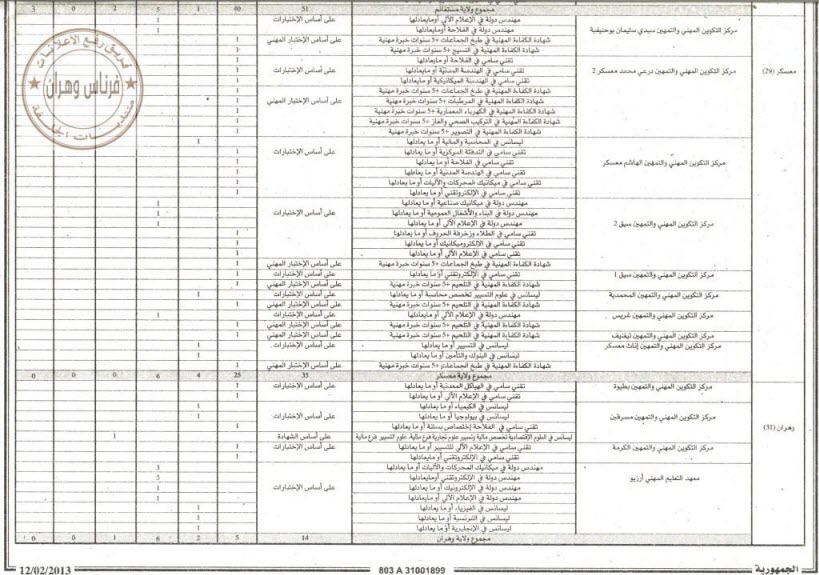 3 0 2 5 1 40 51 مجموع ولاية مستغانم
مركز التكوين المهني والتمهين سيدي سليمان بوحنيفية
مهندس دولة في الإعلام الآلي أومايعادلها على أساس الإختبارات 1
مهندس دولة في الفلاحة أومايعادلها 1
شهادة الكفاءة المهنية في طبخ الجماعات +5 سنوات خبرة مهنية على أساس الإختبار المهني 1
شهادة الكفاءة المهنية في النسيج +5 سنوات خبرة مهنية 1
معسكر (29)
مركز التكوين المهني والتمهين درعي محمد معسكر 2
تقني سامي في الفلاحة أو مايعادلها 1
تقني سامي في الهندسة المدنية أو مايعادلها على أساس الإختبارات 1
تقني سامي في الهندسة الميكانيكية أو مايعادلها 1
شهادة الكفاءة المهنية في طبخ الجماعات +5 سنوات خبرة مهنية 1
شهادة الكفاءة المهنية في المرطبات +5 سنوات خبرة مهنية على أساس الإختبار المهني 1
شهادة الكفاءة المهنية في الكهرباء المعمارية +5 سنوات خبرة مهنية 1
شهادة الكفاءة المهنية في التركيب الصحي والغاز +5 سنوات خبرة مهنية 1
شهادة الكفاءة المهنية في التصوير +5 سنوات خبرة مهنية 1
مركز التكوين المهني والتمهين الهاشم معسكر
ليسانس في المحاسبة والمالية أو ما يعادلها 1
تقني سامي في التدفئة المركزية أو ما يعادلها على أساس الإختبارات 1
تقني سامي في الفلاحة أو ما يعادلها 1
تقني سامي في الهندسة المدنية أو ما يعادلها 1
تقني سامي في ميكانيك المحركات والآليات أو ما يعادلها 1
تقني سامي في الإلكتروتقني أو ما يعادلها 1
مركز التكوين المهني والتمهين سيق 2
مهندس دولة في ميكانيك صناعية أو ما يعادلها 1
مهندس دولة في البناء والأشغال العمومية أو ما يعادلها على أساس الإختبارات 1
مهندس دولة في الإعلام الآلي أو ما يعادلها 1
تقني سامي في الطلاء وزخرفة الحروف أو ما يعادلها 1
تقني سامي في الإلكتروميكانيك أو ما يعادلها 1
تقني سامي في الإعلام الآلي أو ما يعادلها 1
شهادة الكفاءة المهنية في طبخ الجماعات +5 سنوات خبرة مهنية على أساس الإختبار المهني 1
مركز التكوين المهني والتمهين سيق 1
تقني سامي في الإلكتروتقني أو ما يعادلها على أساس الإختبارات 1
شهادة الكفاءة المهنية في التلحيم +5 سنوات خبرة مهنية على أساس الإختبار المهني 1
مركز التكوين المهني والتمهين المحمدية
ليسانس في علوم التسيير تخصص محاسبة أو ما يعادلها على أساس الإختبارات 1
شهادة الكفاءة المهنية في التلحيم +5 سنوات خبرة مهنية على أساس الإختبار المهني 1
مركز التكوين المهني والتمهين غريس
مهندس دولة في الإعلام الآلي أو مايعادلها على أساس الإختبارات 1
شهادة الكفاءة المهنية في التلحيم +5 سنوات خبرة مهنية على أساس الإختبار المهني 1
مركز التكوين المهني والتمهين تيغنيف
شهادة الكفاءة المهنية في التلحيم +5 سنوات خبرة مهنية على أساس الإختبار المهني 1
مركز التكوين المهني والتمهين إناث معسكر
ليسانس في التسيير أو ما يعادلها على أساس الإختبارات 1
ليسانس في البنوك والتأمين أو ما يعادلها 1
شهادة الكفاءة المهنية في طبخ الجماعات +5 سنوات خبرة مهنية على أساس الإختبار المهني 1
0 0 0 6 4 25 35 مجموع ولاية معسكر
وهران (31)
مركز التكوين المهني والتمهين بطيوة
تقني سامي في الهياكل المعدنية أو ما يعادلها على أساس الإختبارات 1
تقني سامي في الإعلام الآلي أو ما يعادلها 1
مركز التكوين المهني والتمهين مسرقين
ليسانس في الكيمياء أو ما يعادلها 1
ليسانس في بيولوجيا أو ما يعادلها على أساس الإختبارات 1
تقني سامي في الفلاحة إختصاص بستنة أو ما يعادلها 1
ليسانس في العلوم الإقتصادية تخصص مالية وتسيير علوم تجارية فرع مالية، علوم التسيير فرع مالية على أساس الشهادة 1
مركز التكوين المهني والتمهين الكرمة
تقني سامي في الإعلام الآلي للتسيير أو ما يعادلها على أساس الإختبارات 1
تقني سامي في الإلكتروتقني أو مايعادلها 1
معهد التعليم المهني أرزيو
مهندس دولة في ميكانيك المحركات والآليات أو ما يعادلها
مهندس دولة في الإلكتروتقني أومايعادلها
مهندس دولة في الإلكترونيك أو ما يعادلها على أساس الإختبارات 1
مهندس دولة في الإعلام الآلي أو مايعادلها 1
ليسانس في الفيزياء أو ما يعادلها 1
ليسانس في الفرنسية أو ما يعادلها 1
ليسانس في الإنجليزية أو ما يعادلها 1
0 0 1 6 2 5 14 مجموع ولاية وهران
فريق رفع الاعلانات
فرناس وهران
منتديات الجلفة
12/02/2013
803 A 31001899
الجمهورية